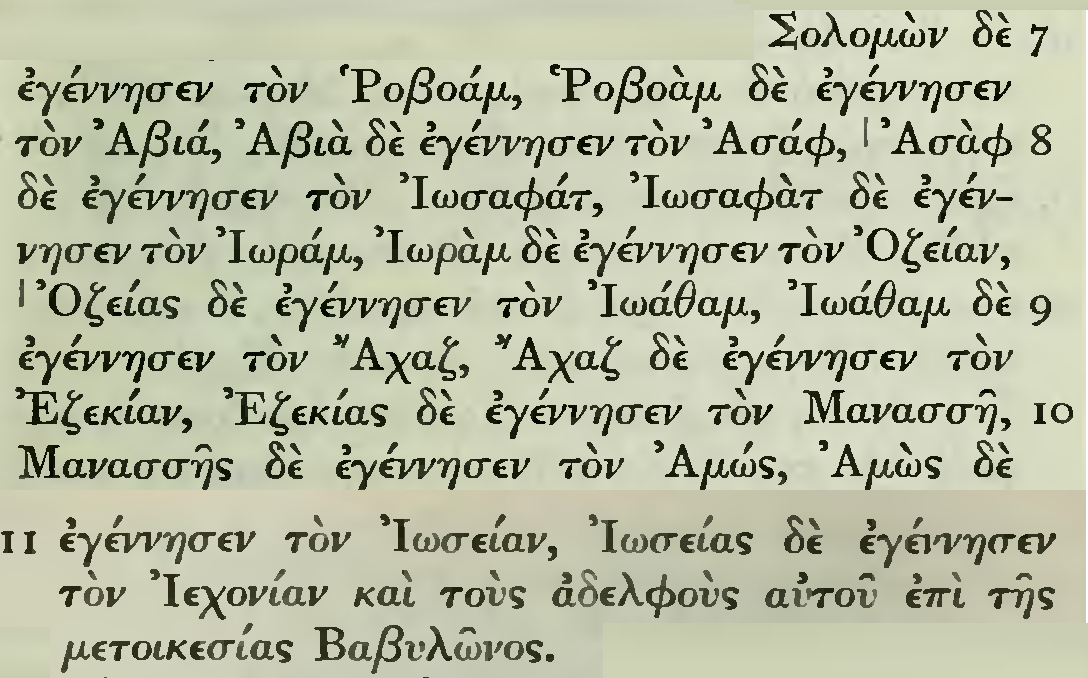 Σολομὼν δὲ 7
ἐγέννησεν τὸν Ῥοβοάμ, Ῥοβοὰμ δὲ ἐγέννησεν
τὸν Ἀβιά, Ἀβιὰ δὲ ἐγέννησεν τὸν Ἀσάφ, | Ἀσὰφ 8
δὲ ἐγέννησεν τὸν Ἰωσαφάτ, Ἰωσαφὰτ δὲ ἐγέν-
νησεν τὸν Ἰωράμ, Ἰωρὰμ δὲ ἐγέννησεν τὸν Ὀζείαν,
| Ὀζείας δὲ ἐγέννησεν τὸν Ἰωάθαμ, Ἰωάθαμ δὲ 9
ἐγέννησεν τὸν Ἄχαζ, Ἄχαζ δὲ ἐγέννησεν τὸν
Ἐζεκίαν, Ἐζεκίας δὲ ἐγέννησεν τὸν Μανασσῆ, 10
Μανασσῆς δὲ ἐγέννησεν τὸν Ἀμώς, Ἀμὼς δὲ
11 ἐγέννησεν τὸν Ἰωσείαν, Ἰωσείας δὲ ἐγέννησεν
τὸν Ἰεχονίαν καὶ τοὺς ἀδελφοὺς αὐτοῦ ἐπὶ τῆς
μετοικεσίας Βαβυλῶνος.